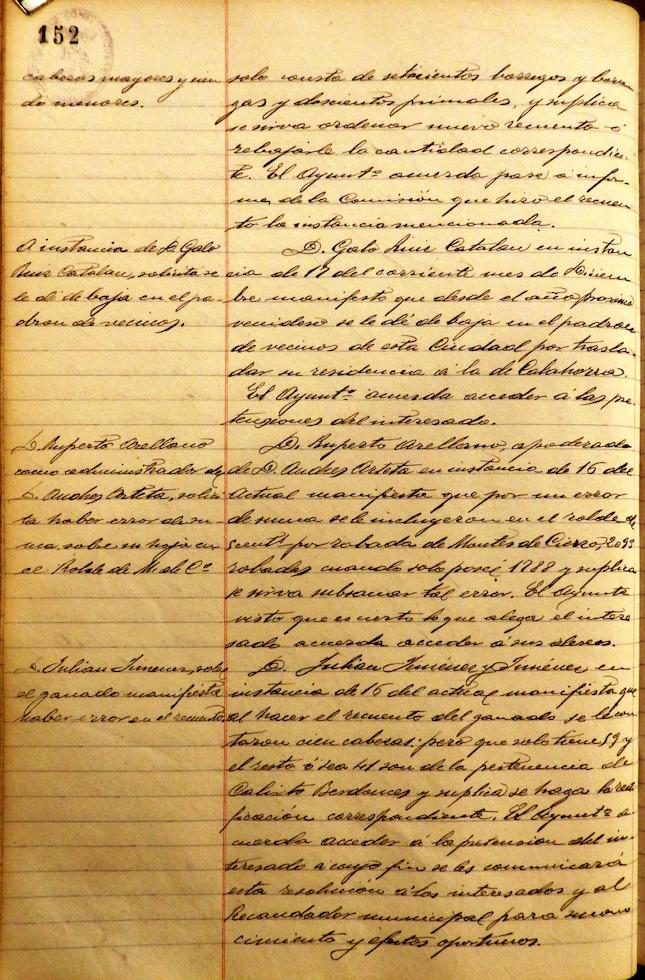 152
cabezas mayores y cien
to menores.
solo consta de setecientos borregos y borre
gas y doscientos primales, y suplica
se sirva ordenar nuevo recuento ó
rebajarle la cantidad correspondien
te. El Ayuntº acuerda pase a infor-
me de la Comisión que hizo el recuen
to la instancia mencionada.
A instancia de D. Galo
Ruiz Catalan, solicita se
le dé de baja en el pa-
dron de vecinos.
D. Galo Ruiz Catalan en instan
cia de 17 del corriente mes de Diciem
bre manifestó que desde el año proximo
venidero se le dé de baja en el padron
de vecinos de esta Ciudad por trasla
dar su residencia á la de Calahorra.
El Ayuntº acuerda acceder á las pre
tensiones del interesado.
D. Ruperto Arellano
como administrador de
D. Andres Arteta, solici
ta haber error de su-
ma sobre su hoja en
el Rolde de M. de Cº
D. Ruperto Arellano, apoderado
de D. Andres Arteta en instancia de 16 del
actual manifiesta que por un error
de suma se le incluyeron en el rolde de
por robada de Montes de Cierzo,
robadas cuando solo posee 1788 y suplica
se sirva subsanar tal error. El Ayuntº
visto que es cierto lo que alega el intere
sado acuerda acceder a sus deseos.
D. Julian Jimenez, sobre
el ganado manifiesta
haber error en el recuento
D. Julian Jiménez y Jiménez en
instancia de 16 del actual manifiesta que
al hacer el recuento del ganado se le con
taron cien cabezas: pero que solo tiene 59 y
el resto ó sea 41 son de la pertenencia de
Calixto y suplica se haga la recti
ficación correspondiente. El Ayuntº a
cuerda acceder á la pretension del in-
teresado a cuyo fin se les comunicará
esta resolución á los interesados y al
Recaudador municipal para su cono
cimiento y efectos oportunos.